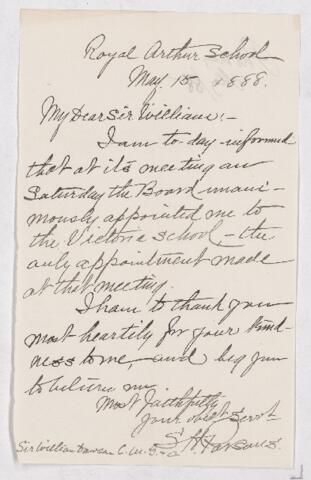 Royal Arthur School
May 15 1888.
My Dear Sir William:-
I am to-day informed
that at its meeting on
Saturday the Board unani-
mously appointed me to
the Victoria School - the
only appointment made
at that meeting.
I have to thank you
most heartily for your kind-
ness to me, and beg you
to believe me,
Most faithfully
Your obdt servt
S H Parsons.
Sir William Dawson C.M.G.